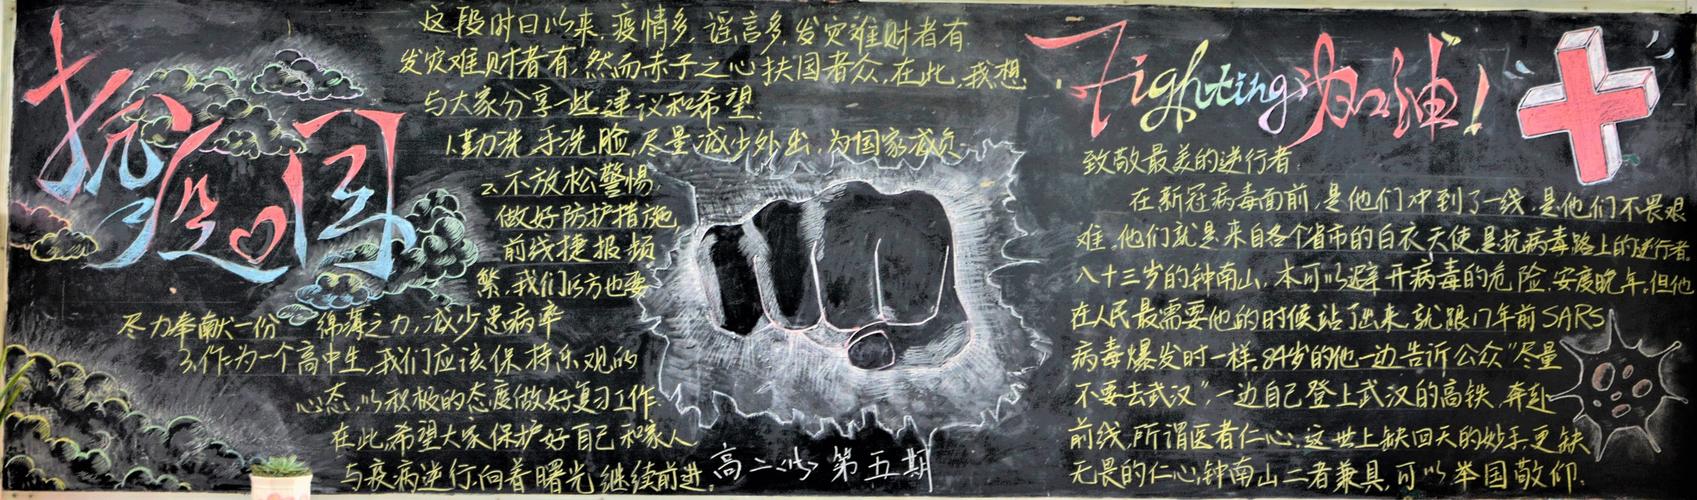 抗疫
这段时日以来,疫情多,谣言多,发灾难财者有
发灾难财者有,然而赤子之心扶国者众,在此,我想
与大家分享一些建议和希望:
1.勤洗手洗脸,尽量减少外出,为国家减负
2.不放松警惕,
做好防护措施,
前线捷报频
繁,我们后方也要
尽力奉献一份 绵薄之力,减少患病率
3.作为一个高中生,我们应该保持乐观的
心态,以积极的态度做好复习工作.
在此,希望大家保护好自己和家人
与疫病逆行,向着曙光,继续前进。
高二 第五期
Fighting加油!
致敬最美的逆行者
在新冠病毒面前,是他们冲到了一线,是他们不畏艰
难,他们就是来自各个省市的白衣天使是抗病毒路上的逆行者。
八十三岁的钟南山,本可以避开病毒的危险,安度晚年,但他
在人民最需要他的时候站了出来,就跟17年前SARS
病毒爆发时一样,84岁的他一边告诉公众"尽量
不要去武汉",一边自己登上武汉的高铁,奔赴
前线,所谓医者仁心,这世上缺回天的妙手,更缺
无畏的仁心,钟南山二者兼具,可以举国敬仰.